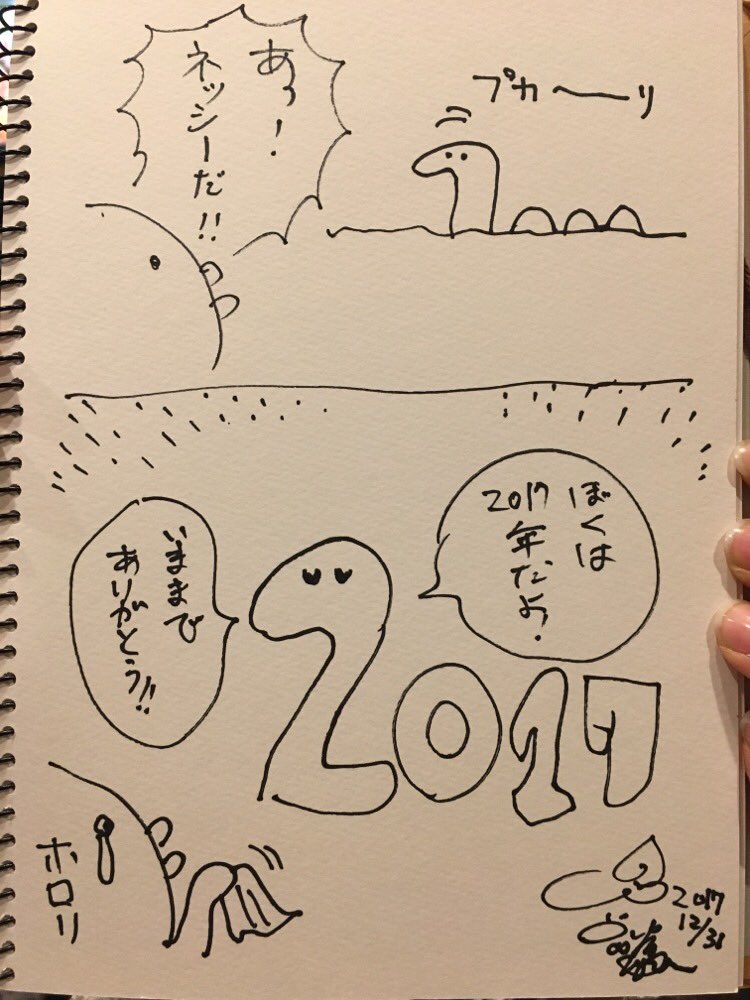 プカ〜〜リ
あっ!
ネッシーだ!!
ぼくは
2017
年だよ。
いままで
ありがとう!!
2017
ホロリ
2017
12/31